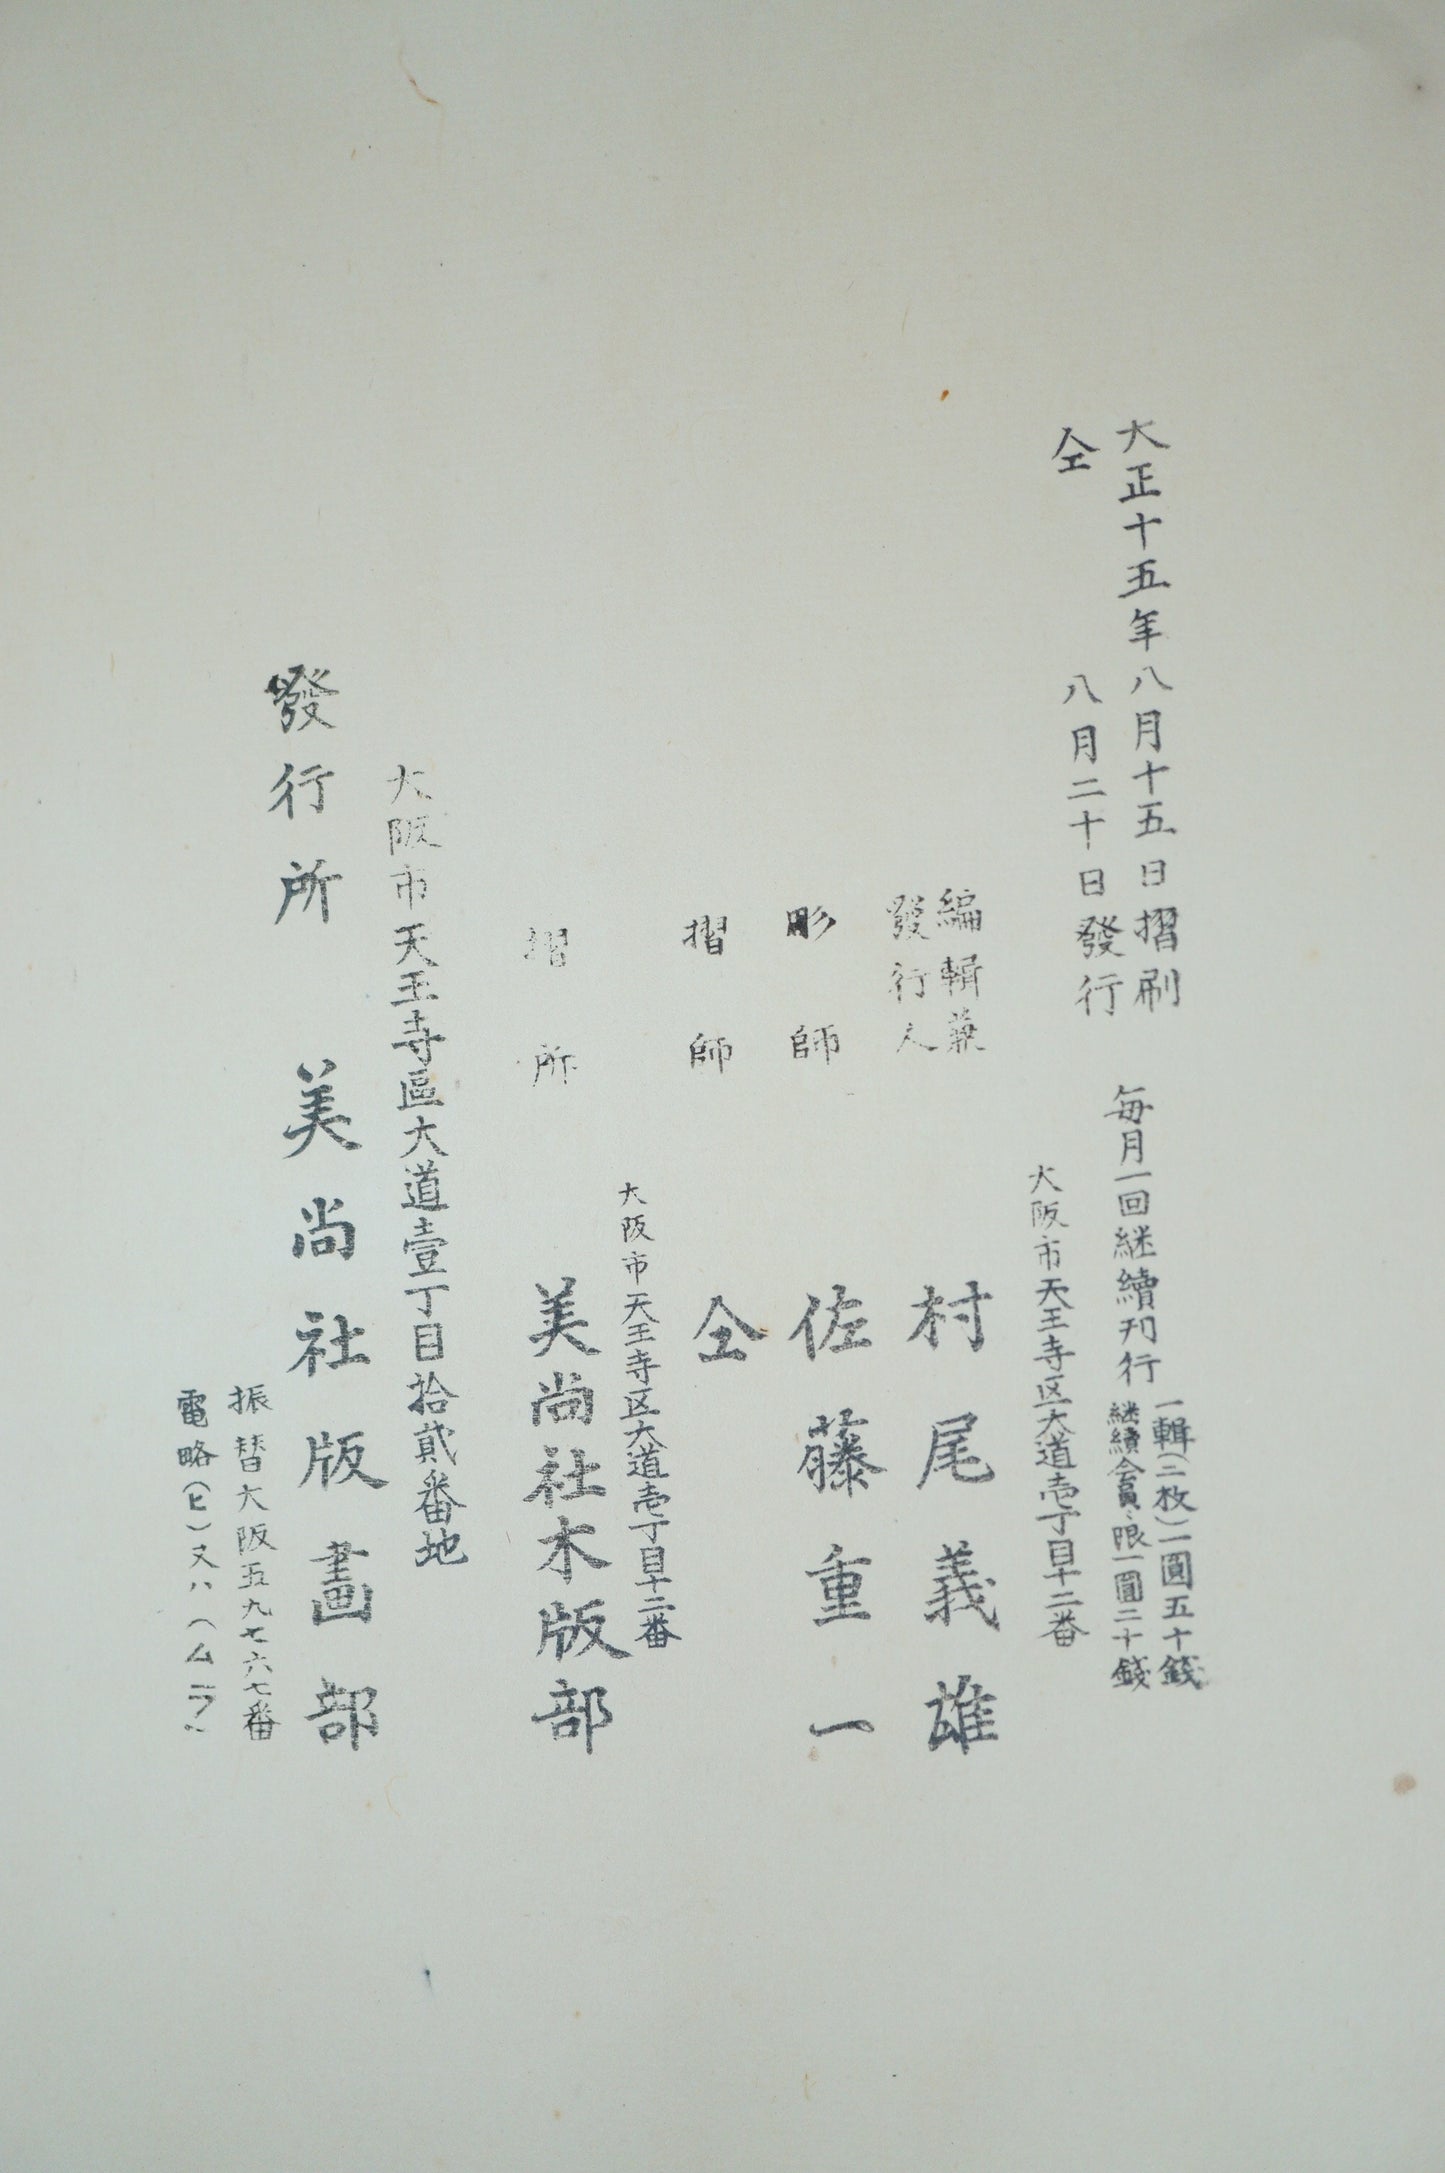 大正十五年八月十五日摺刷
仝　八月二十日發行
毎月一回継續刊行
一輯(二枚)一圓五十錢
継續會員ニ限一圓二十錢
大阪市天王寺区大道壱丁目十二番
編輯兼
發行人
村尾義雄
彫師　佐藤重一
摺師　仝
大阪市天王寺区大道壱丁目十二番
摺所　美尚社木版部
大阪市天王寺區大道壹丁目拾貳番地
發行所　美尚社版畫部
振替大阪五九七六七番
電略(ヒ)又ハ(ムラ)